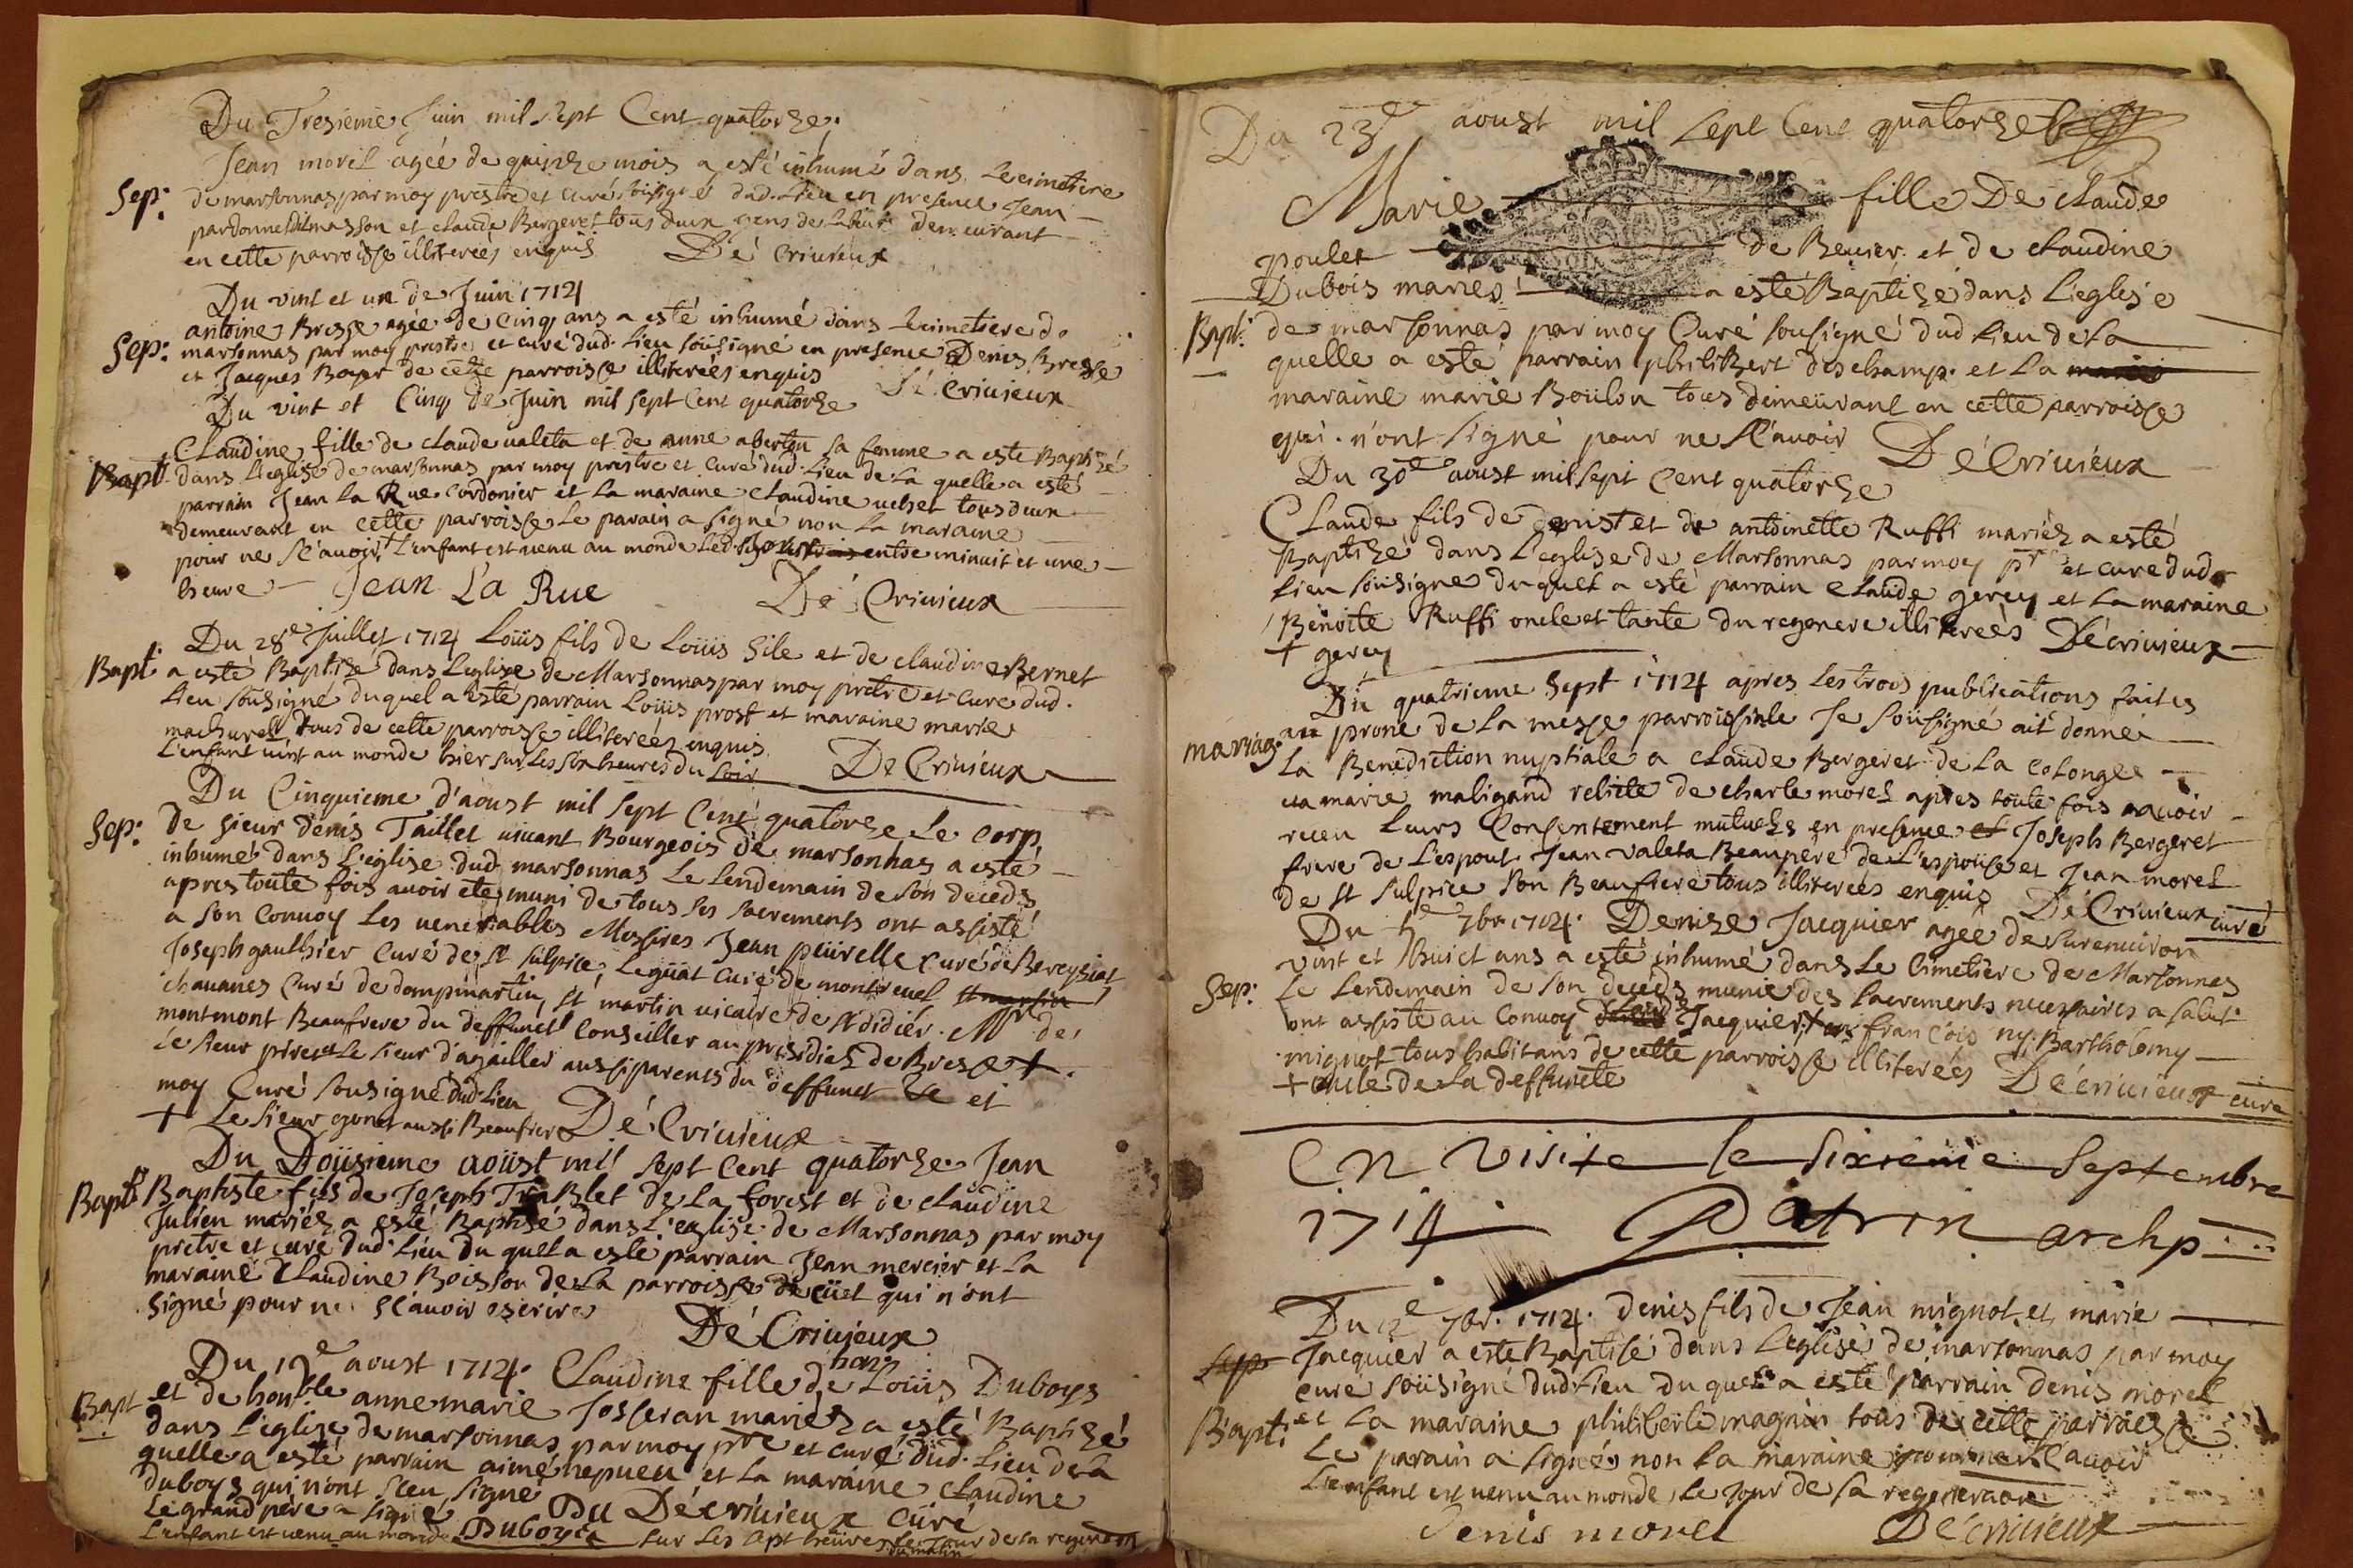 Du Tresieme Juin mil sept Cent quatorze.
Jean morel agée de quinze mois a esté inhumé dans le cimetiere
Sep: de marsonnas par moy prestre et curé sousigné dud. lieu en presence Jean
pardonnet dit masson et claude Bergeret tous deux gens de demeurant
en cette parroisse illiterées enquis Dé Criuieux
Du vint et un de Juin 1714
antoine Bresse agée de cinq ans a esté inhumé dans le cimetiere de
Sep: marsonnas par moy prestre et curé dud. lieu sousigné en presence Denis Bresse
et Jacques Boyer de cette parroisse illiterées enquis Dé Criuieux
Du vint et Cinq de Juin mil sept Cent quatorze
Claudine fille de claude ualeta et de anne sa femme a este Baptizé
Bapt. dans l'eglise de marsonnas par moy prestre et curé dud. lieu de la quelle a esté
parrain Jean la Rue Cordonier et la maraine claudine tous deux
demeurant en cette parroisse le parain a signé non la maraine
pour ne sc'auoir + L'enfant est uenu au monde led. entre minuit et une
heure Jean La Rue Dé Criuieux
Du 28e Juillet 1714 Loüis fils de Loüis Sile et de claudine Bernet
Bapt: a esté Baptizé dans l'eglise de Marsonnas par moy pretre et curé dud.
lieu sousigné duquel a esté parrain Loüis prost et maraine marie
machurel tous de cette parroisse illiterées enquis
L'enfant uint au monde hier sur les six heures du soir De Criuieux
Du Cinquieme d'aoust mil sept Cent quatorze le corp
Sep: de sieur denis Taillet uiuant Bourgeois de marsonnas a esté
inhumé dans l'eglise dud marsonnas le lendemain de son deceds
apres toute fois auoir ete muni de tous ses sacrements ont assisté
a son Conuoy les uenerables Messires Jean peürelle curé de Bereysiat
Joseph gaulthier Curé de St sulpice, Legüat Curé de montreuel st martin
chauanes Curé de dompmartin, st martin uicaire de St didier. Mr de
montmont Beaufrere du deffunct Conseiller au presidiel de Bresse +
le sieur et le sieur d'agailler aussi parents du deffunct et
moy Curé sousigné dud. lieu
+ Le sieur gonet aussi Beaufrere Dé Criuieux
Du Doüsieme aoüst mil sept Cent quatorze. Jean
Bapt Baptiste fils de Joseph TraBlet de la forest et de claudine
Julien mariez a esté Baptisé dans l'eglise de Marsonnas par moy
pretre et curé dud. lieu du quel a esté parrain Jean mercier et la
maraine Claudine Boisson de la parroisse de cüet qui n'ont
signé pour ne sc'auoir escrire Dé Criuieux
Du 19e aoust 1714. Claudine fille de hon. Loüis Duboys
Bapt et de honble anne marie Josseran mariéz a esté Baptizé
dans l'eglize de marsonnas par moy ptre et curé dud. lieu de la
quelle a esté parrain aimé nepueu et la maraine claudine
duboys qui n'ont sceu signé
Le grand pere a signé Du Décriuieux Curé
L'enfant est uenu au monde Duboys sur les sept heures du matin le jour de sa regeneration
Du 23e aoust mil sept Cent quatorze
Marie fille De claude
poulet de Beuier et de claudine
Dubois mariés a esté Baptizé dans l'eglise
Bapt: de marsonnas par moy Curé sousigné dud lieu de la
quelle a esté parrain philiBert deschamp. et la
maraine marie Boülon tous demeürant en cette parroisse
qui n'ont signé pour ne sc'auoir Dé Criuieux
Du 30e aoust mil sept Cent quatorze
Claude fils de denis + et de antoinette Ruffi mariéz a esté
Baptizé dans l'eglise de Marsonnas par moy ptre et curé dud
lieu sousigné duquel a esté parrain Claude gerey et la maraine
Benoite Ruffi oncle et tante du regeneré illiterées Décriuieux
+ gerey
Du quatrieme Sept 1714 apres les trois publications faites
mariag. au prone de la messe parroissiale Je soüsigné ait donné
la Benediction nuptiale a claude Bergeret de la colonge
et a marie maligand relicte de charle morel apres toute fois auoir
receu leurs Consentement mutuels en presence et Joseph Bergeret
frere de l'espout Jean valeta Beaupere de l'espouse et Jean morel
de St sulpice son Beaufrere tous illiterees enquis Dé Criuieux curé
Du 5e 7br 1714. Denize Jacquier agée de s'urenuiron
vint et huict ans a esté inhumé dans le Cimetiere de Marsonnas
Sep: le lendemain de son deceds munie des sacrements necessaires a salut
ont assiste au Conuoy denis Jacquier + francois ny. Bartholomy
mignot tous habitans de cette parroisse illiterées Décriuieux curé
+ oncle de la deffuncte
En Visite le sixieme Septembre
1714 Patrin archp
Du 12e 7br. 1714. denis fils de Jean mignot et marie
sep Jacquier a este Baptisé dans l'eglise de marsonnas par moy
curé soüsigné dud. lieu du quel a esté parrain denis morel
Bapt: et la maraine philiberte magnin tous de cette parroisse
le parain a signé non la maraine pour ne sc'auoir
L'enfant est uenu au monde le jour de sa regeneraõn
Denis morel Décriuieux